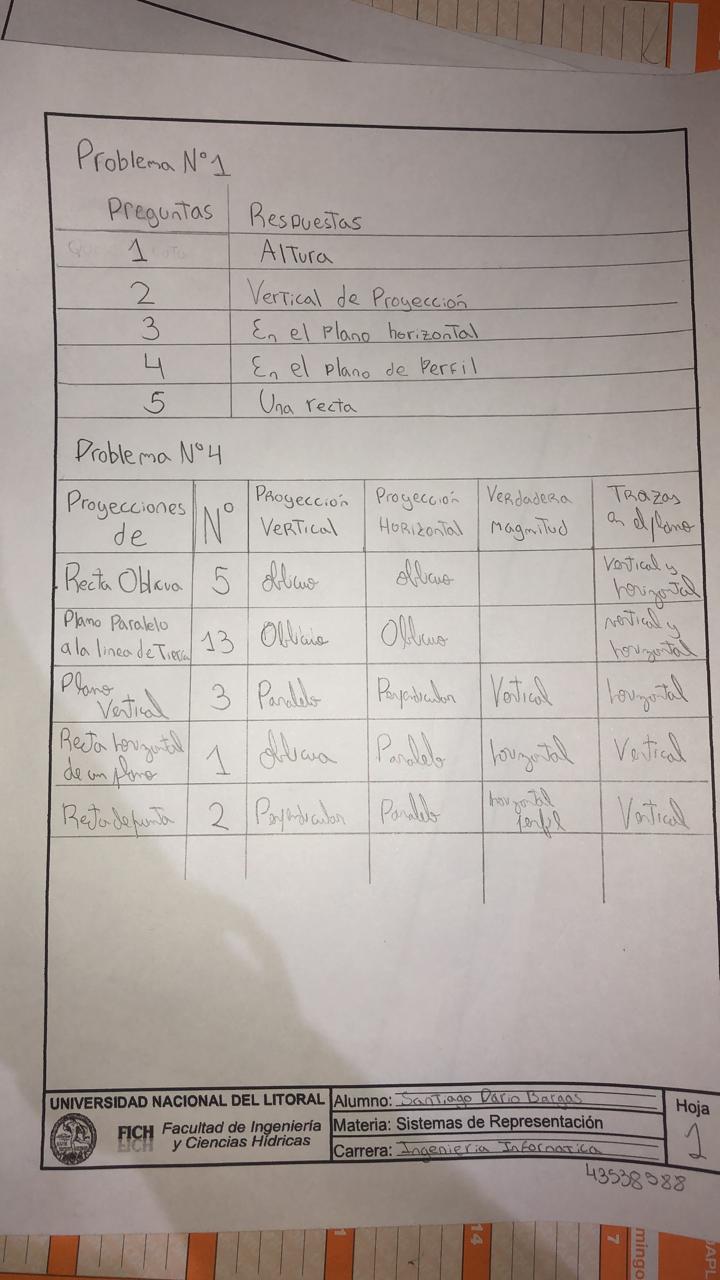 Problema N°1
Preguntas Respuestas
1 Altura
2 Vertical de Proyección
3 En el plano horizontal
4 En el plano de Perfil
5 Una recta
Problema N°4
Proyecciones de N° Proyección Vertical Proyección Horizontal Verdadera Magnitud Trazas en el plano
Recta Oblicua 5 oblicuo oblicuo vertical y horizontal
Plano Paralelo a la linea de Tierra 13 Oblicuo Oblicuo vertical y horizontal
Plano Vertical 3 Paralelo Perpendicular Vertical horizontal
Recta horizontal de un plano 1 oblicua Paralelo horizontal Vertical
Recta de punta 2 Perpendicular Paralelo horizontal perfil Vertical
UNIVERSIDAD NACIONAL DEL LITORAL
FICH Facultad de Ingeniería y Ciencias Hídricas
Alumno: Santiago Dario Bargas
Materia: Sistemas de Representación
Carrera: Ingenieria Informatica
Hoja 1
43538588
14
7
mingo